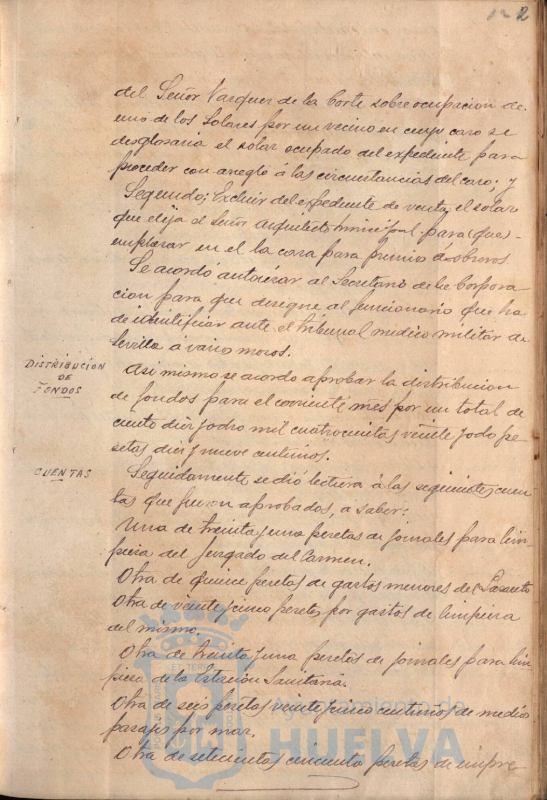 2
del Señor Vazquez de la Corte sobre ocupacion de
uno de los Solares por un vecino en cuyo caso se
desglosaria el solar ocupado del expediente para
proceder con arreglo á las circunstancias del caso; y
Segundo; Excluir del expediente de venta el solar
que elija el Señor Arquitecto municipal para (que)
emplazar en el la casa para premio á obreros
Se acordó autorizar al Secretario de la Corpora-
cion para que designe al funcionario que ha
de identificar ante el tribunal medico militar de
Sevilla á varios mozos.
DISTRIBUCION
DE
FONDOS
Asi mismo se acordo aprobar la distribucion
de fondos para el corriente mes por un total de
ciento diez y ocho mil cuatrocientas veinte y ocho pe
setas diez y nueve centimos.
CUENTAS
Seguidamente se dió lectura á las siguientes cuen
tas que fueron aprobadas, a saber:
Una de treinta y una pesetas de jornales para lim-
pieza del Juzgado del Carmen.
Otra de quince pesetas de gastos menores del
Otra de veinte y cinco pesetas por gastos de limpieza
del mismo.
Otra de treinta y una pesetas de jornales para lim
pieza de la Estacion Sanitaria.
Otra de seis pesetas veinte y cinco centimos de medios
pasajes por mar.
Otra de setecientas cincuenta pesetas de impre
Ayuntamiento de
HUELVA